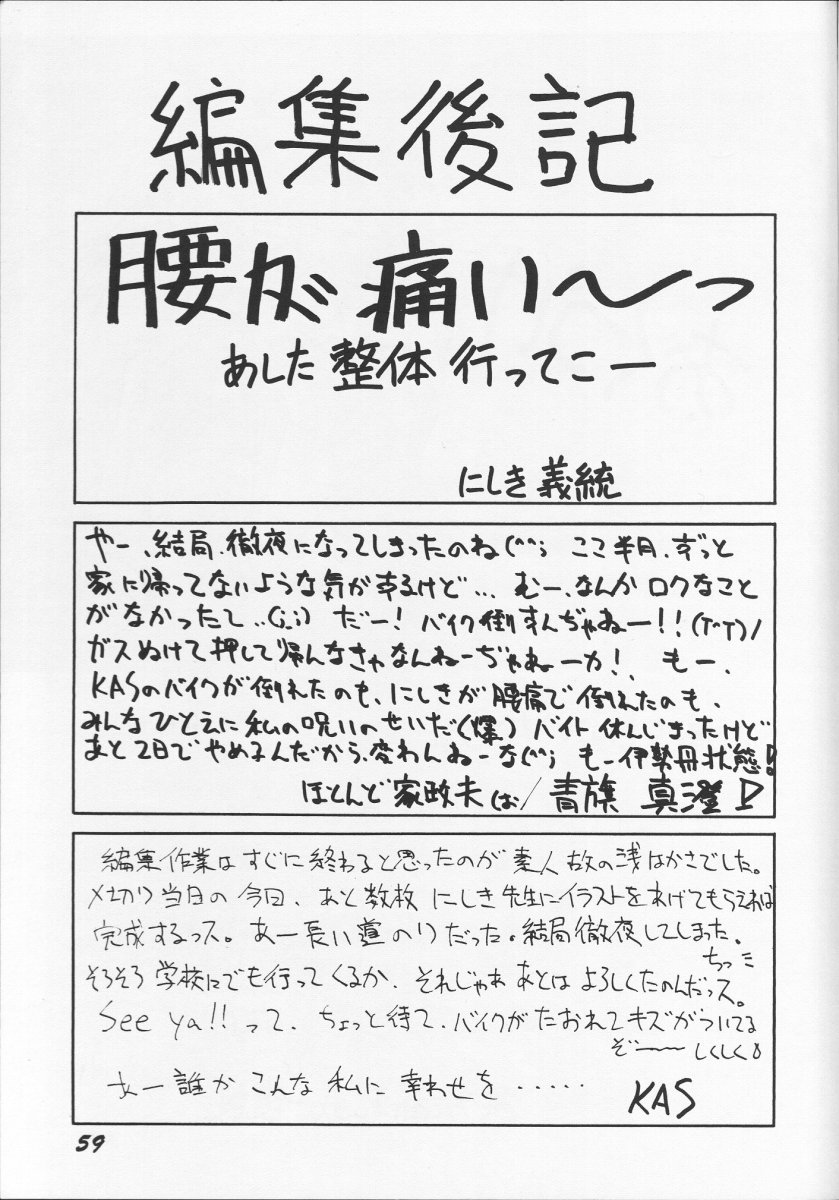 編集後記
腰が痛い〜っ
あした整体行ってこー
にしき義統
やー、結局、徹夜になってしまったのね(^^; ここ半月、ずっと
家に帰ってないような気がするけど… むー、なんかロクなこと
がなかったて‥(;;) だー! バイク倒すんぢゃねー!!(T^T)/
ガスぬけて押して帰んなきゃなんねーぢゃねーカ! もー、
KASのバイクが倒れたのも、にしきが腰痛で倒れたのも、
みんなひとえに私の呪いのせいだ(爆) バイト休んじまったけど
あと2日でやめるんだから、変わんねーな(^^; もー伊勢丹状態!
ほとんど家政夫(お)/青旗 真澄
編集作業はすぐに終わると思ったのが素人故の浅はかさでした。
〆切り当日の今日、あと数枚にしき先生にイラストをあげてもらえれば
完成するっス。あー長い道のりだった。結局徹夜してしまった。
ちっミ
そろそろ学校にでも行ってくるか、それじゃぁあとはよろしくたのんだっス。
See ya!! って、ちょっと待て、バイクがたおれてキズがついてる
ぞ〜〜 しくしく
あー誰かこんな私に幸わせを・・・・・
KAS
59